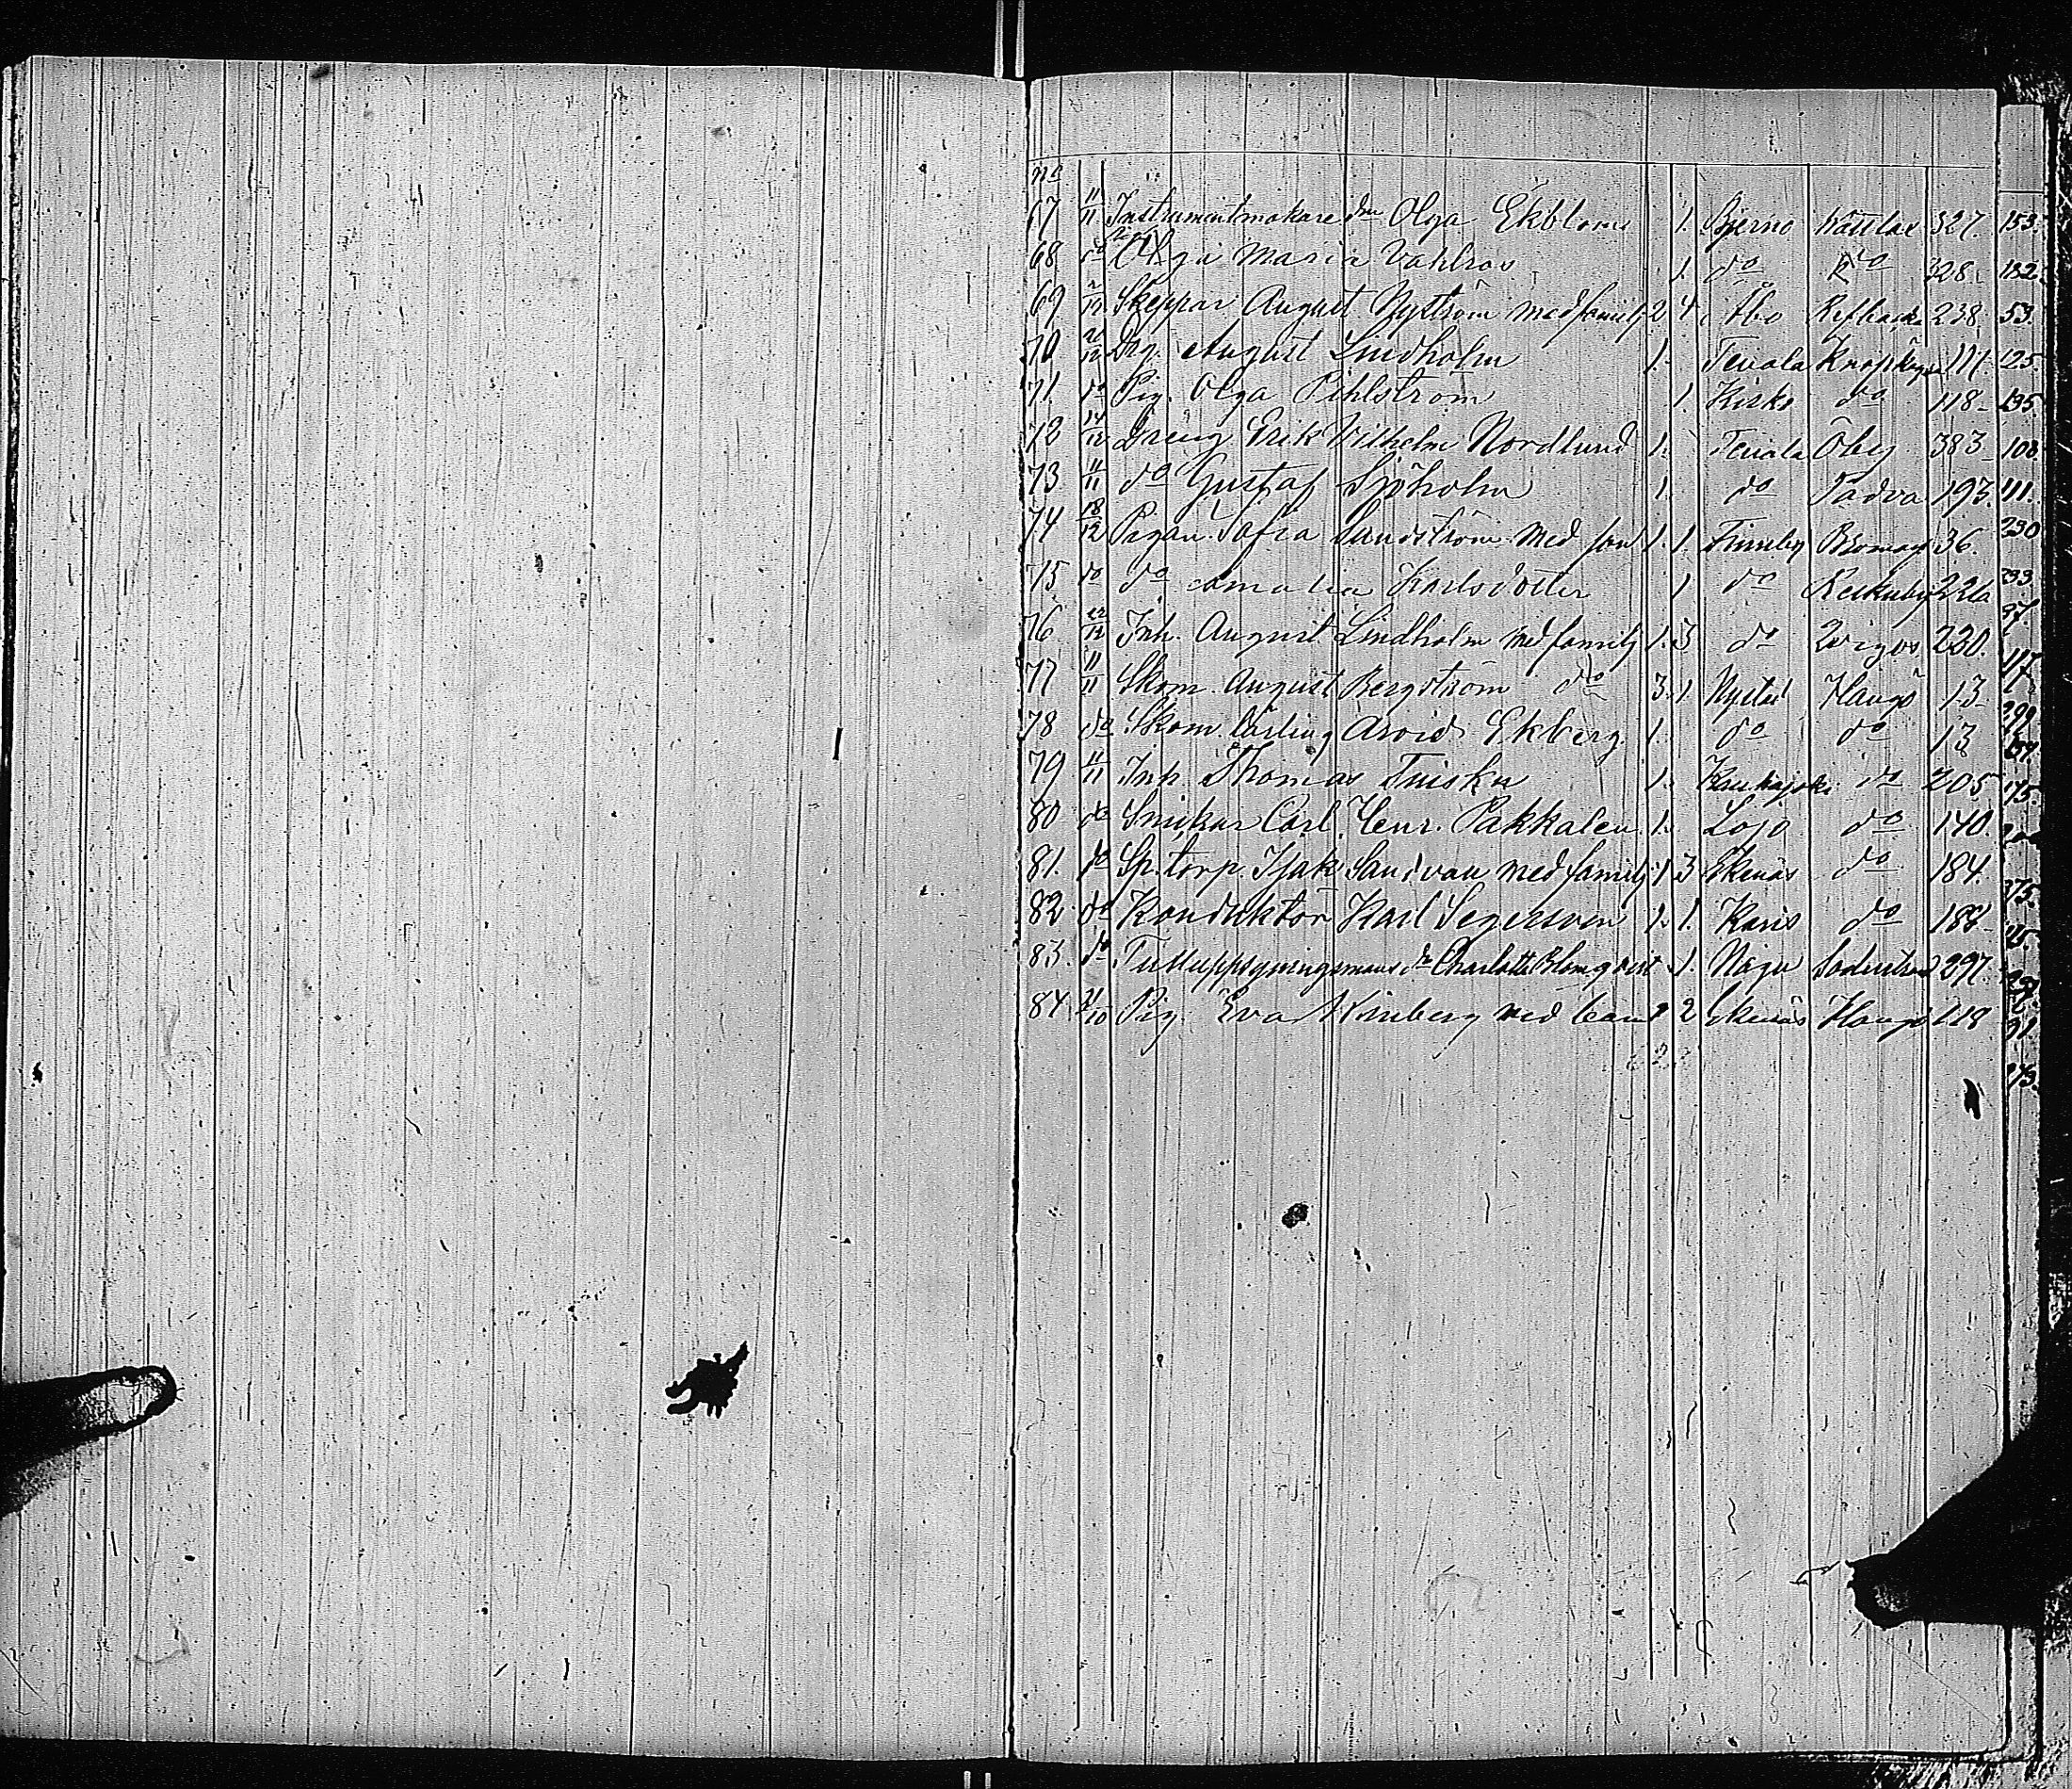 no
67 11/11 Instrumentmakare dm Olga Ekblom 1. Bjerno 327. 153.
68 do Olga Maria Vahlros 1. do do 328. 182.
69 Skeppar August Nyström med familj 2 4 Åbo 238. 53.
70 Drg. August Lindholm 1. Tenala 117. 125.
71. do Pig. Olga Pihlström 1. Kisko do 118.
72 14/12 Dreng Erik Vilhelm Nordlund 1. Tenala Öby 383 108.
73. 11/11 do Gustaf Sjöholm 1. do Padva 193. 111.
74 18/12 Pigan Sofia Sundström med son 1. 1. Finnby Bromarf 36. 230
75 do do Amalia Karlsdotter 1 do 293.
76 Inh. August Lindholm med familj 1. 3 do 220.
77 11/11 Skom. August Bergström do 3. 1 Nystad Hangö 13.
78 do Skom. lärling Arvid Ekberg 1. do do 13
79 11/11 Inh. Thomas 1. do 205 175.
80 do Snikar Carl Henr. Pakkalen 1. Lojo do 140.
81. do Sp. torp. Isak Sandvall med familj 1 3 Ekenäs do 184. 375.
82 do Konduktör Karl Segersven 1. 1. Karis do 188.
83. do Tulluppsyningsmans do Charlotta Blomqvist 1. Nagu 297.
84. Pig. Eva Kinberg med barn 2 Ekenäs Hangö 118 91